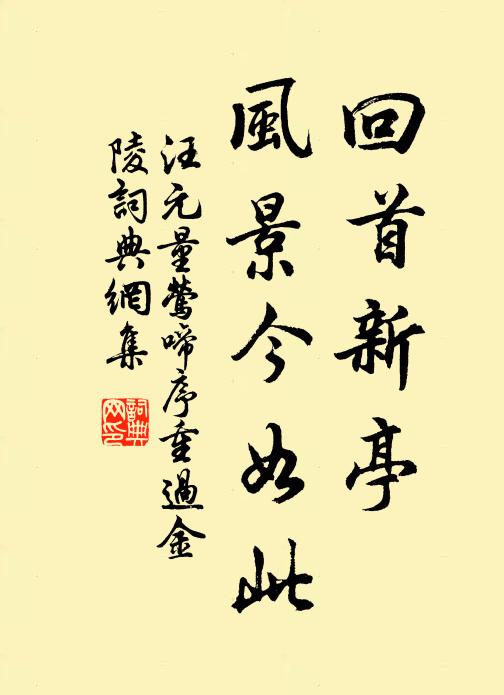 回首新亭
風景今如此
汪元量鶯啼序重過金
陵詞典網集
詞典
网印